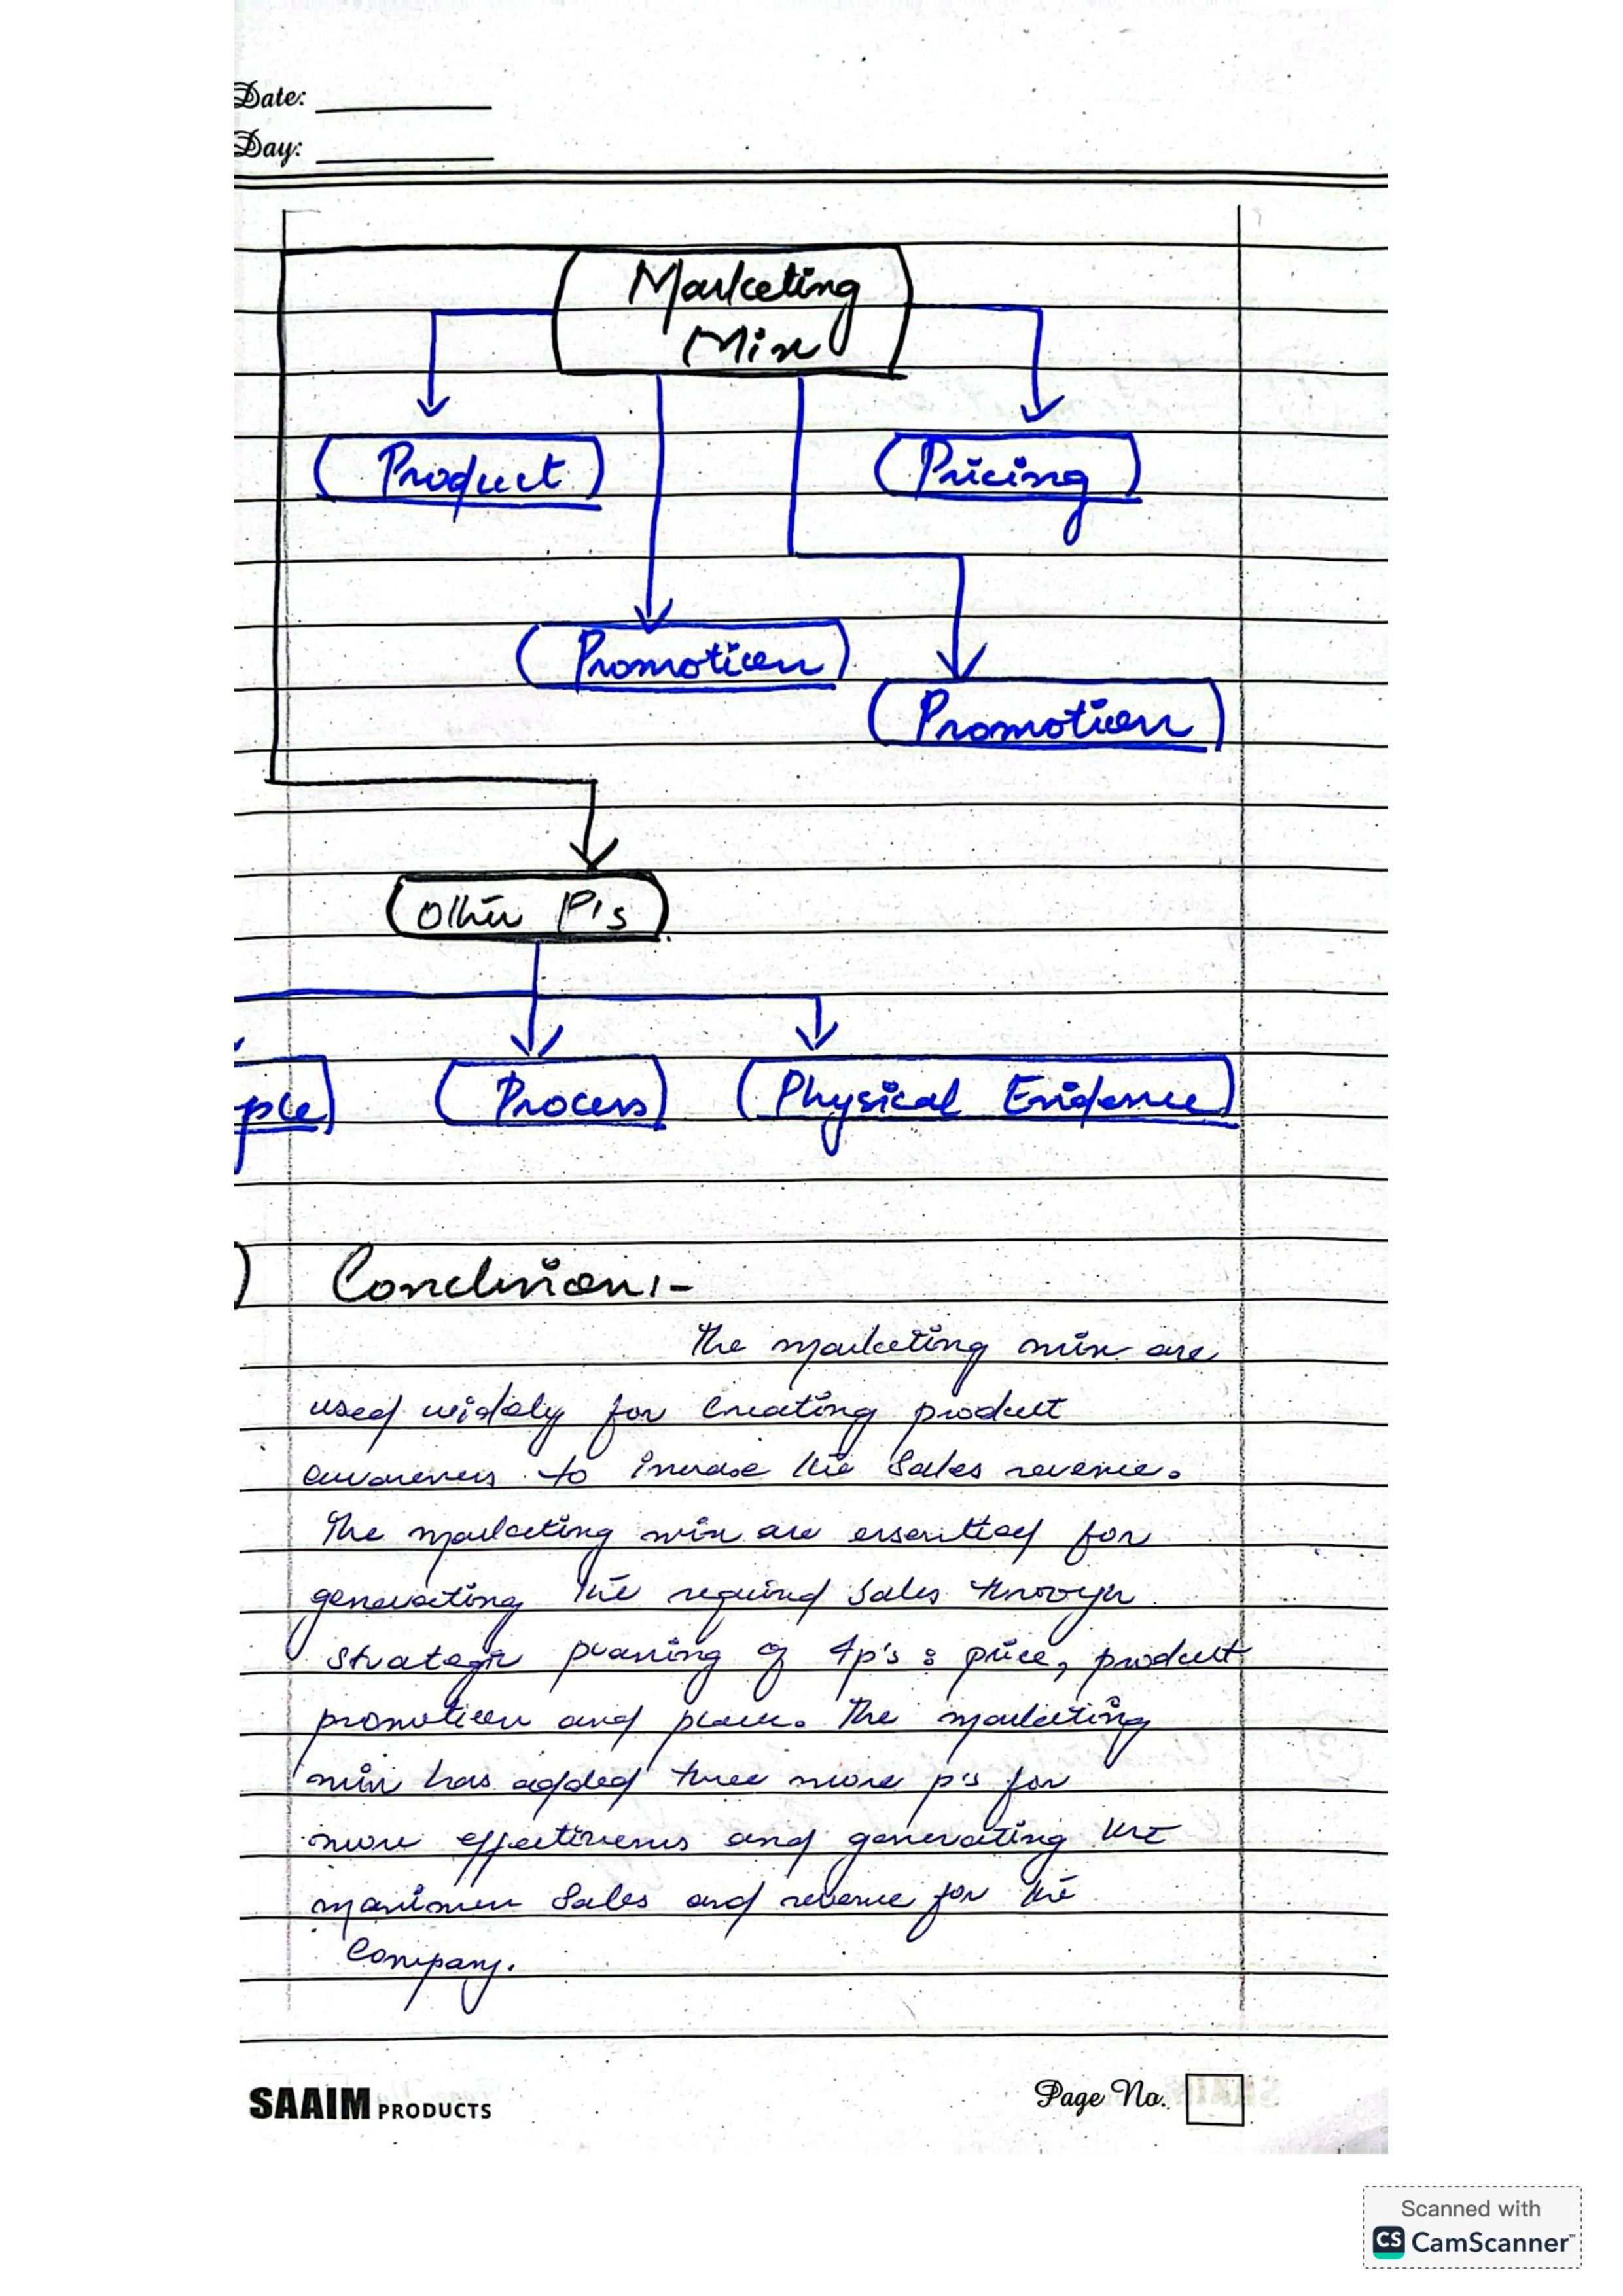 Date:
Day:
Marketing
Mix
Product
Pricing
Promotion
Promotion
Other P's
ple
Process
Physical Evidence
) Conclusion:-
The marketing mix are
used widely for creating product
awareness to increase the sales revenue.
The marketing mix are essential for
generating the required sales through
strategic planning of 4p's : price, product
promotion and place. The marketing
mix has added three more p's for
more effectiveness and generating the
maximum sales and revenue for the
company.
SAAIM PRODUCTS
Page No.
Scanned with
CS CamScanner